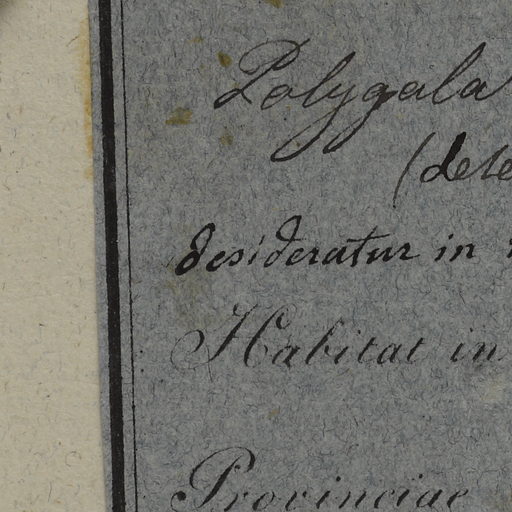 Polygala
(dete
desideratur in
Habitat in
Provinciae